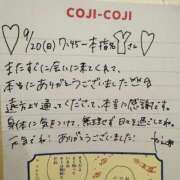 COJI-COJI
♡ 9/20(日) 17:45~本指名 さん♡
またすぐに会いに来てくれて、
本当にありがとうございました
遠方より通ってくださって、本当に感謝です。
身体に気をつけて、無理せず日々を過ごしてね。
元気でね! ありがとうございました!